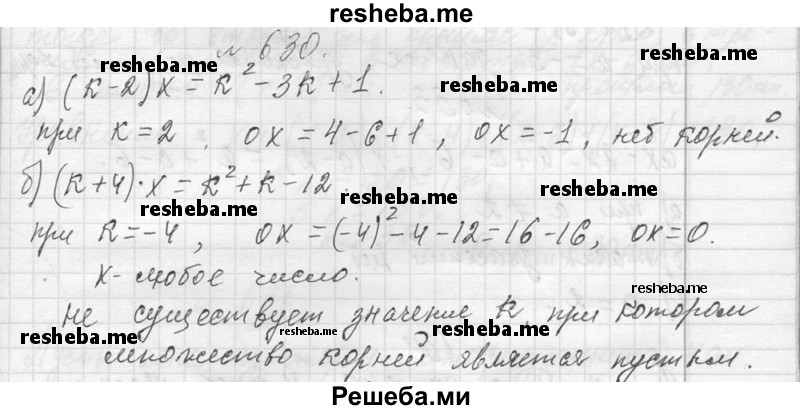 resheba.me
№ 630.
resheba.me resheba.me
а) (к-2)х = к² - 3к + 1.
при к = 2, 0х = 4-6+1, 0х = -1, нет корней.
resheba.me resheba.me
б) (к+4)·х = к² + к - 12.
resheba.me resheba.me
при к = -4, 0х = (-4)² - 4 - 12 = 16 - 16, 0х = 0.
х - любое число.
resheba.me
не существует значение к, при котором
resheba.me resheba.me
множество корней является пустым.
Решеба.ми